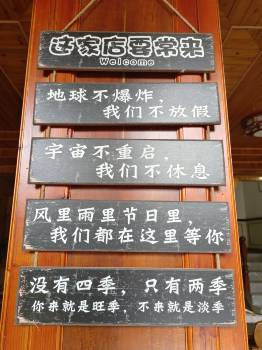 这家店要常来
Welcome
地球不爆炸，
我们不放假
宇宙不重启，
我们不休息
风里雨里节日里，
我们都在这里等你
没有四季，只有两季
你来就是旺季，不来就是淡季